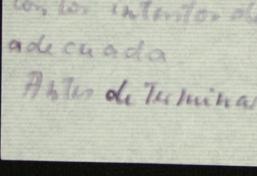 con los intentos de
adecuada
Antes de Termina